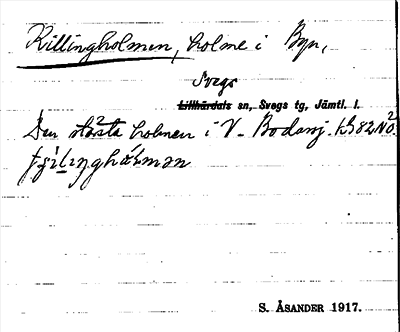 Killingholmen, holme i Byn,
Svegs
Lillhärdals sn, Svegs tg, Jämtl. l.
Den största holmen i V. Bodsj. kB 82 NÖ.
S. ÅSANDER 1917.